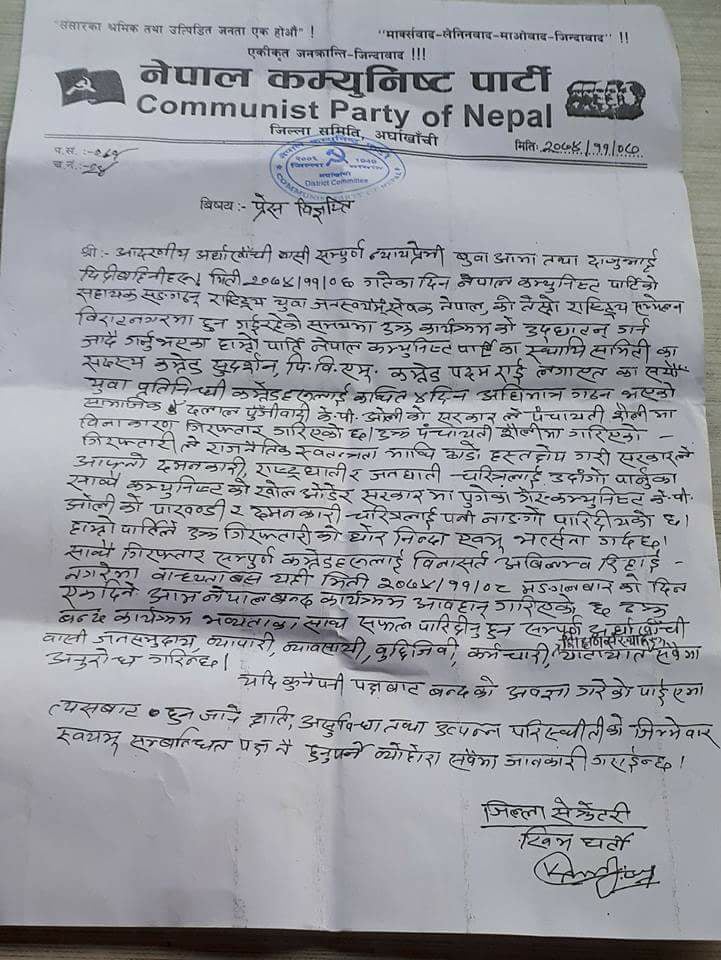 "संसारका श्रमिक तथा उत्पिडित जनता एक होऔं" ! "मार्क्सवाद-लेनिनवाद-माओवाद-जिन्दावाद" !!
एकीकृत जनक्रान्ति-जिन्दावाद !!!
नेपाल कम्युनिष्ट पार्टी
Communist Party of Nepal
जिल्ला समिति, अर्घाखाँची
प.सं.:-
च.नं.:-
मिति: २०७४/११/०८
अर्घाखाँची
District Committee
COMMUNIST PARTY OF NEPAL
विषय:- प्रेस विज्ञप्ति
श्री:- आदरणीय अर्घाखाँची वासी सम्पूर्ण न्यायप्रेमी बुवा आमा तथा दाजुभाई
दिदीबहिनीहरु, मिती २०७४/११/०६ गतेका दिन नेपाल कम्युनिष्ट पार्टिको
सहायक सङगठन राष्ट्रिय युवा जनस्वयम् सेवक नेपाल, को तेस्रो राष्ट्रिय सम्मेलन
विराटनगरमा हुन गईरहेको समयमा उक्त कार्यक्रम को उद्घाटन गर्न
जादै गर्नुभएका हाम्रो पार्टि नेपाल कम्युनिष्ट पार्टि का स्थायि समिती का
सदस्य कमरेड सुदर्शन, पि.बि.एम. कमरेड पदम राई लगाएत का सयौं
युवा प्रतिनिधी कमरेडहरुलाई कथित ४ दिन अघिमात्र गठन भएको
सामाजिक दलाल पुँजीवादी के.पी. ओलीको सरकार ले पंचायती शैलीमा
विनाकारण गिरफ्तार गरिएको छ। उक्त पंचायती शैलीमा गरिएका -
गिरफ्तारी ले राजनैतिक स्वतन्त्रता माथि काडो हस्तक्षेप गरी सरकारले
आफ्नो दमनकारी, राष्ट्रघाती र जनघाती चरित्रलाई उदांगो पार्नुका
साथै कम्युनिष्ट को खोल ओडेर सरकार मा पुगेका गैर-कम्युनिष्ट के.पी.
ओली को पाखण्डी र दमनकारी चरित्रलाई पनी नाङगो पारिदीएको छ।
हाम्रो पार्टिले उक्त गिरफ्तारी को घोर निन्दा एवम् भर्त्सना गर्दछ।
साथै गिरफ्तार सम्पूर्ण कमरेडहरुलाई विनासर्त अबिलम्ब रिहाई -
नगरेमा वाध्यतावस यही मिती २०७४/११/०८ मङगलबार को दिन
एकदिने आम नेपाल बन्द कार्यक्रम आवहान गरिएको छ उक्त
बन्द कार्यक्रम भव्यताका साथ सफल पारिदिनु हुन सम्पूर्ण अर्घाखाँची
वासी जनसमुदाय, व्यापारी, व्यावसायी, बुद्धिजिवी, कर्मचारी, यातायात सबैमा
अनुरोध गरिन्छ।
यदि कुनैपनी पक्षबाट बन्द को अवज्ञा गरेको पाईएमा
त्यसबाट हुन जाने क्षति, असुविधा तथा उत्पन्न परिस्थीतीको जिम्मेवार
स्वयम् सम्बन्धित पक्ष नै हुनुपर्ने व्योहोरा सबैमा जानकारी गराईन्छ।
जिल्ला सेक्रेटरी
खिम घर्ती